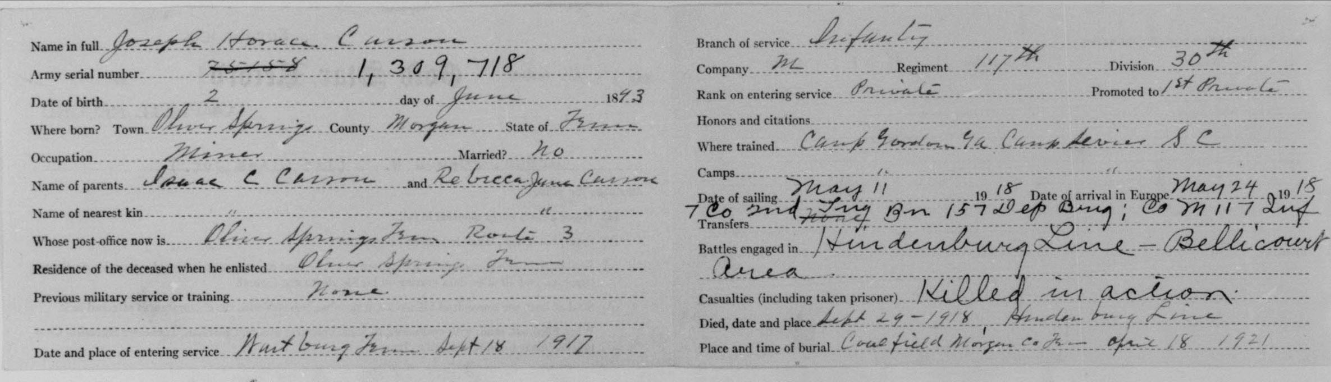 Name in full Joseph Horace Carson
Army serial number 75158 1,309,718
Date of birth 2 day of June 1893
Where born? Town Oliver Springs County Morgan State of Tenn
Occupation Miner Married? No
Name of parents Isaac C Carson and Rebecca Jane Carson
Name of nearest kin " "
Whose post-office now is Oliver Springs Tenn Route 3
Residence of the deceased when he enlisted Oliver Springs Tenn
Previous military service or training None
Date and place of entering service Wartburg Tenn Sept 18 1917
Branch of service Infantry
Company M Regiment 117th Division 30th
Rank on entering service Private Promoted to 1st Private
Honors and citations
Where trained Camp Gordon Ga Camp Sevier S C
Camps " "
Date of sailing May 11 1918 Date of arrival in Europe May 24 1918
7 Co 2nd Trg Bn 157 Dep Brig; Co M 117 Inf
Transfers None
Battles engaged in Hindenburg Line - Bellicourt
Area
Casualties (including taken prisoner) Killed in action.
Died, date and place Sept 29-1918, Hindenburg Line
Place and time of burial Coalfield Morgan Co Tenn April 18 1921